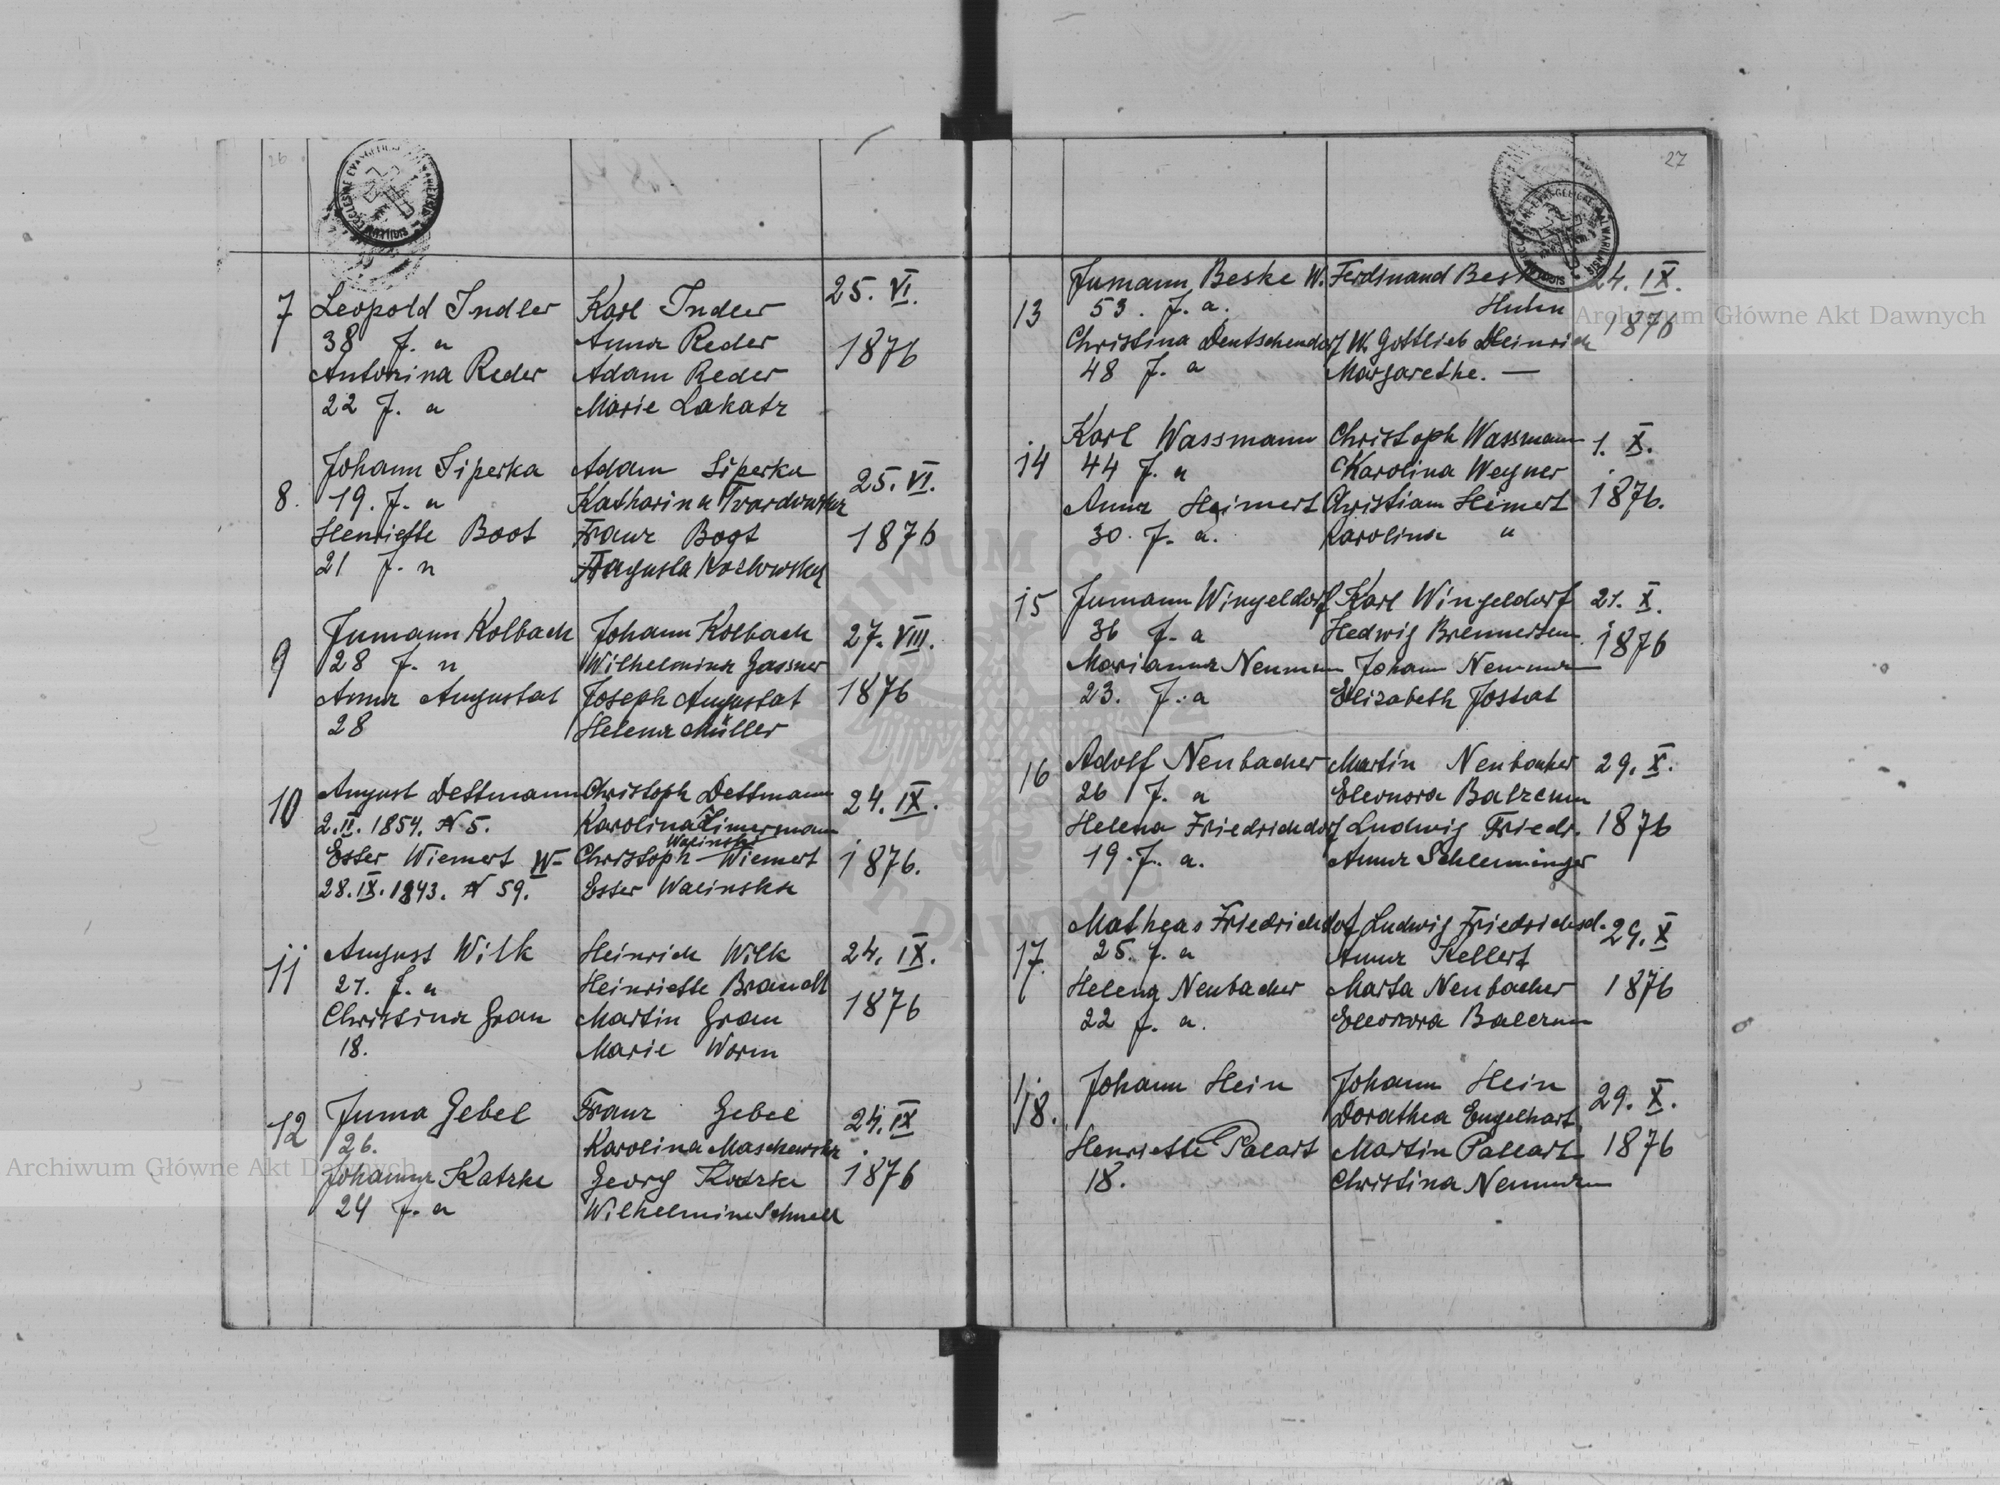 26
7
Leopold Indler
Karl Indler
25. VI.
38 J. a
Anna Reder
1876
Antonina Reder
Adam Reder
22 J. a
Marie Lakatz
8.
Johann Siperka
Adam Siperka
25. VI.
19. J. a
Katharina Tvardowska
Henriette Boot
Franz Bogt
1876
21 J. a
Augusta Kozlowska
9
Jumann Kolbach
Johann Kolbach
27. VIII.
28 J. a
Wilhelmina Gassner
Anna Augustat
Joseph Augustat
1876
28
Helena Müller
10
August Dettmann
Christoph Dettmann
24. IX.
2. II. 1854. N 5.
Karolina Zimermann
Walinski
Esser Wiemert W-
Christoph Wiemert
1876.
28. IX. 1843. N 59.
Esser Walinska
11
August Wilk
Heinrich Wilk
24. IX.
21. J. a
Heinriette Brandt
Christina Grau
Martin Grau
1876
18.
Marie Worm
12
Juma Gebel
Franz Gebel
24. IX
26.
Karolina Maschewska
Johanna Katzke
Georg Katzke
1876
24 J. a
Wilhelmine Schnell
27
13
Jumann Beske W.
Ferdinand Beske
24. IX.
53. J. a.
Huhn
1876
Christina Deutschendorf W.
Gottlieb Heinrich
48 J. a
Margarethe. —
14
Karl Wassmann
Christoph Wassmann
1. X.
44 J. a
Karolina Wegner
Anna Heimert
Christian Heimert
1876.
30. J. a.
Karolina "
15
Jumann Wingeldorf
Karl Wingeldorf
21. X.
36 J. a
Hedwig Brennersen
1876
Marianna Neumann
Johann Neumann
23. J. a
Elizabeth Jostat
16
Adolf Neubacher
Martin Neubacher
29. X.
26 J. a
Eleonora Balzerun
Helena Friedrichdorf
Ludwig Friedr.
1876
19. J. a.
Anna Schleminger
17.
Matheas Friedrichdorf
Ludwig Friedrichsd.
29. X
25. J. a
Anna Kellert
Helena Neubacher
Marta Neubacher
1876
22 J. a.
Eleonora Balzrun
18.
Johann Hein
Johann Hein
29. X.
Dorathea Engelhart
Henriette Paleart
Martin Paleart
1876
18.
Christina Neumann
Archiwum Główne Akt Dawnych
Archiwum Główne Akt Dawnych